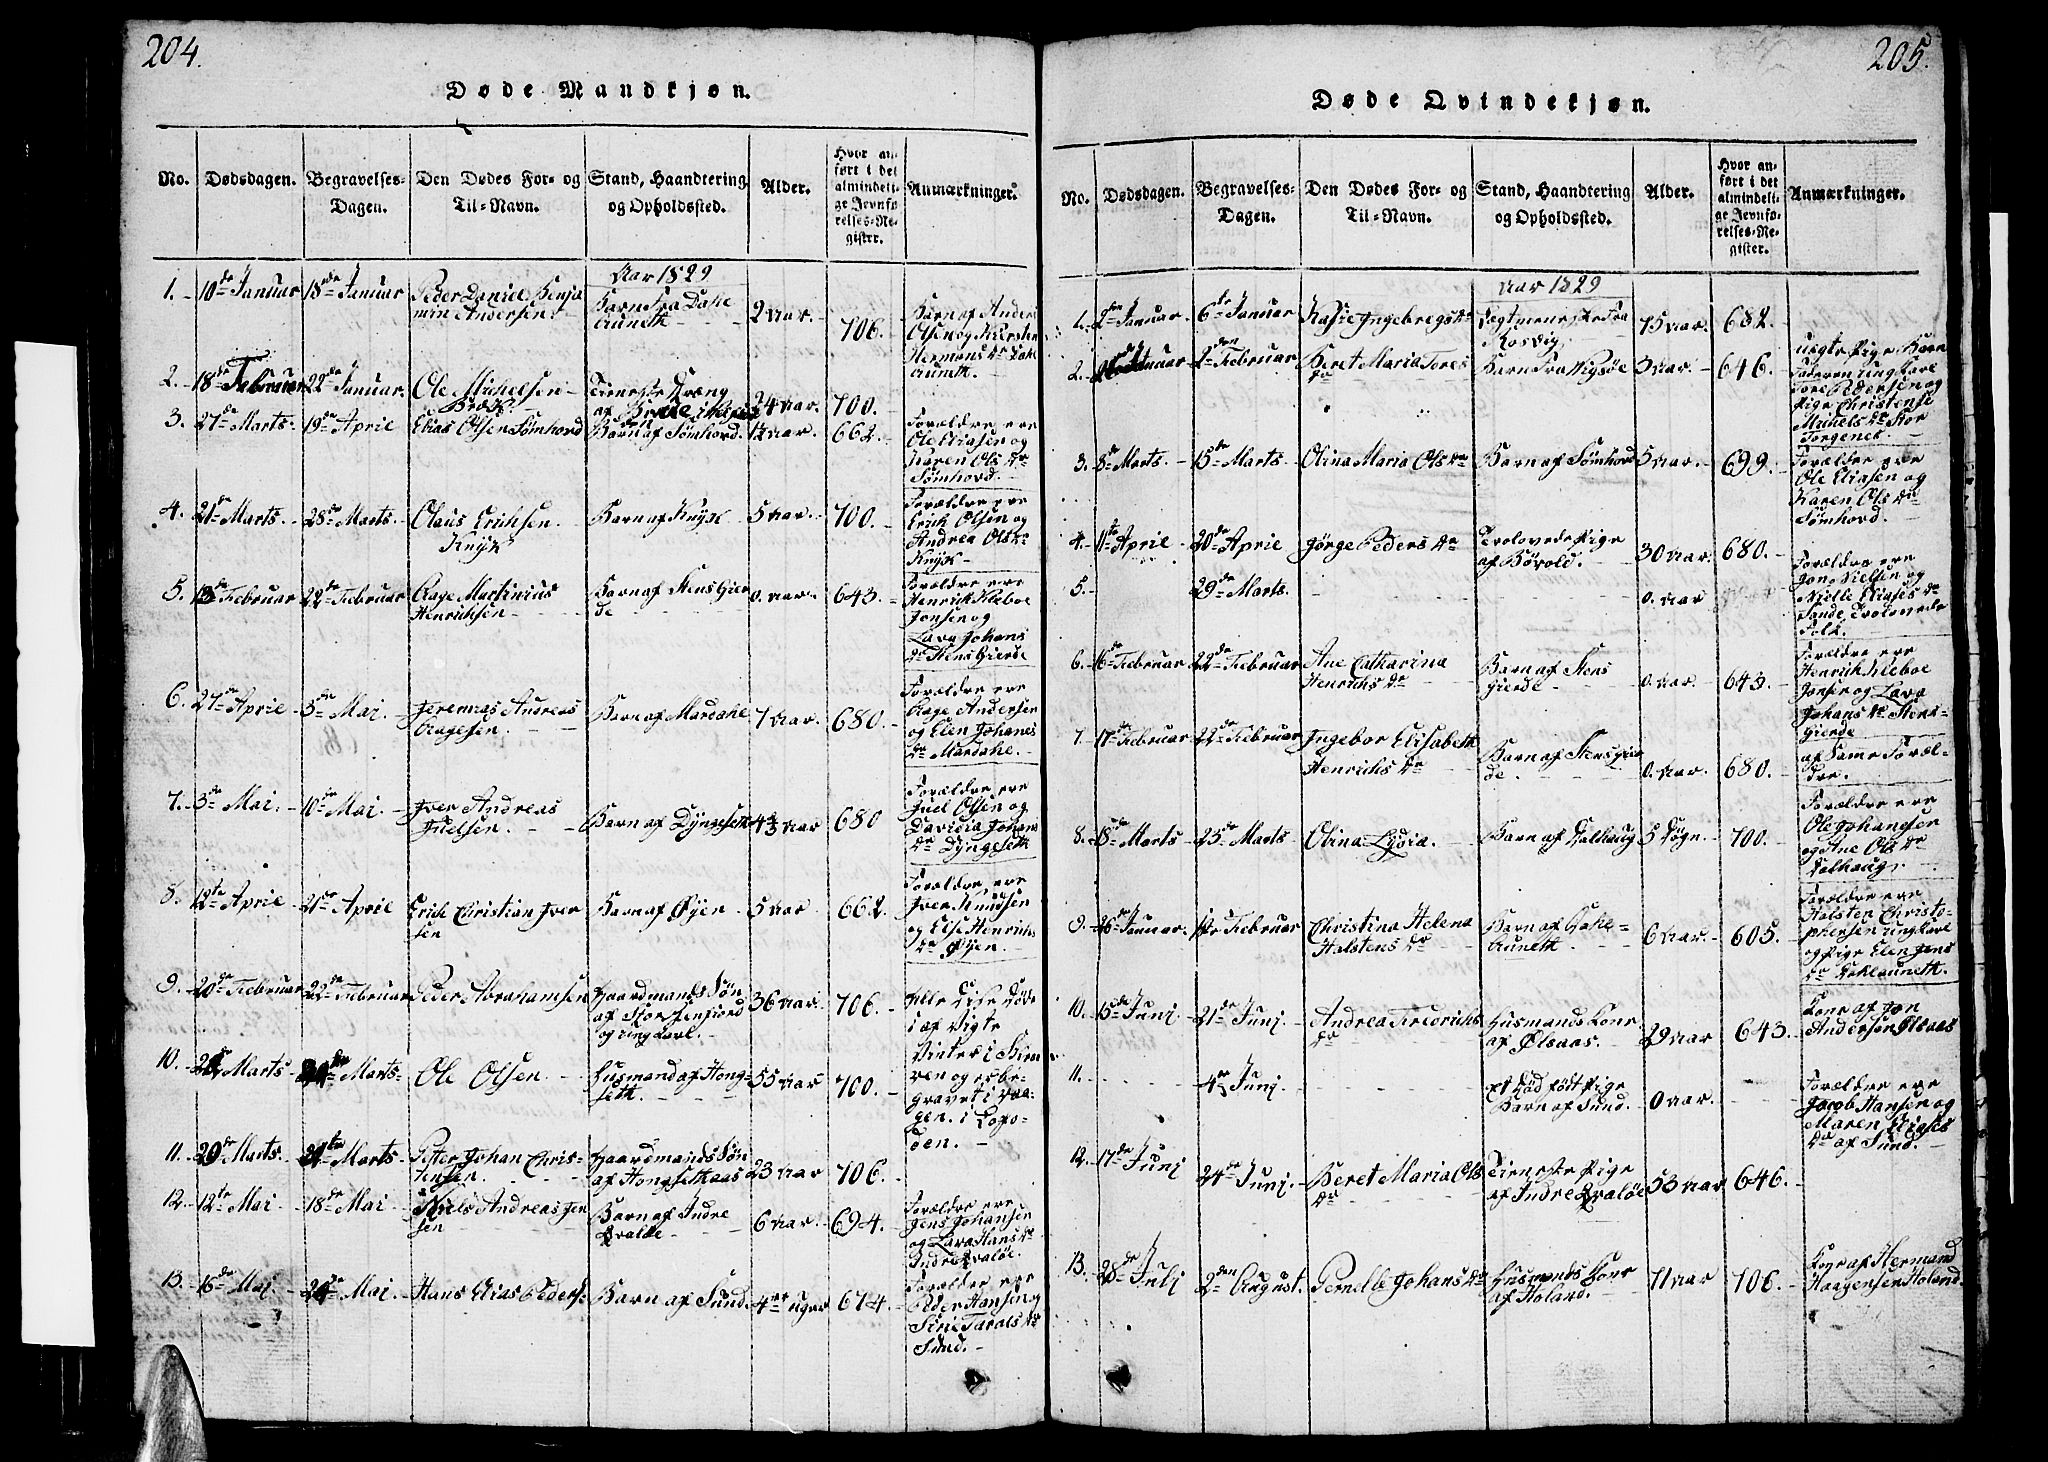 204.
Døde Mandkjøn.
No.
Dødsdagen.
Begravelses-
Dagen.
Den Dødes For- og
Til-Navn.
Stand, Haandtering
og Opholdssted.
Alder.
Hvor an-
ført i det
almindeli-
ge Jevnfø-
relses-Re-
gister.
Anmærkninger.
Aar 1829
1. 10de Januar 18de Januar Peder Daniel Benja
min Andersen.
Barn fra
2 Aar. 706.
Barn af Anders
Olsen og Kiersten
Hermans Dr
2. 18de Februar 22de Januar. Ole Mikkelsen
Tieneste Dræng
af
24 Aar. 700.
3. 27de Marts 19de April Elias Olsen Sømhovd Barn af Sømhovd. 12 Aar. 662.
Forældre ere
Ole Eliasen og
Karen Ols Dr
Sømhovd.
4. 21de Marts 28de Marts. Olaus Erichsen
Knÿk
Barn af Knÿk 5 Aar. 700.
Forældre ere
Erich Olsen og
Andrea Ols Dr
Knÿk
5. 13de Februar 22de Februar Aage Martinius
Henrichsen
Barn af Stensgier
de
0. Aar. 643.
Forældre ere
Henrik Kleboe
Jonsen og
Lava Johans
Dr Stensgierde
6. 27de April 3de Mai. Jeremias Andreas
Aagesen.
Barn af Mardahl 7 Aar. 680.
Forældre ere
Aage Andersen
og Elen Johanes
Dr Mardahl.
7. 3de Mai. 10de Mai Iver Andreas
Juelsen.
Barn af Dyngeseth 4 Aar 680
Forældre ere
Juel Olsen og
Davidia Johans
Dr Dyngeseth
8. 12te April 21de April Erich Christian Iver
sen
Barn af Øyen 5 Aar 662.
Forældre ere
Iver Knudsen
og Else Henrichs
Dr Øyen.
9. 20de Februar 22de Februar Peder Abrahamsen
Gaardmands Søn
af Storstenfiord
og ungkarl.
36 Aar 706.
Alle disse døde
i af Vigte
Vinter i
ven og er be-
gravet i Vaa-
gen. i Lofo-
den.
10. Marts Marts Ole Olsen.
Husmand af Hong-
seth.
55 Aar 700.
11. 29de Marts. 31te Marts Petter Johan Chris-
tensen.
Gaardmands Søn
af Hongsethaas
23 Aar 706.
12. 12te Mai 18de Mai Niels Andreas Jen
sen
Barn af Indre
Qvaløe
6 Aar 694.
Forældre ere
Jens Johansen
og Lava Hans Dr
Indre Qvaløe.
13. 16de Maj. 24de Mai. Hans Elias Peders. Barn af Sund. 4re uger 674.
Forældre ere
Peder Hansen og
Sirie Tarals Dr
Sund.
205.
Døde Qvindekjøn.
No.
Dødsdagen.
Begravelses-
Dagen.
Den Dødes For- og
Til-Navn.
Stand, Haandtering
og Opholdssted.
Alder.
Hvor an-
ført i det
almindeli-
ge Jevnfø-
relses-Re-
gister.
Anmærkninger.
Aar 1829
1. 2den Januar. 6te Januar Ingebregs Dr
Lægtmeneske fra
Kosvig
75 Aar. 682.
2. Januar Februar Beret Maria Tores
Dr
Barn fra 3 Aar 646.
uægte Pige Barn
Faderen ungkarl
Tore Pedersen og
Pige Christense
Mikkels Dr Stor
Torgenes.
3. 8de Marts. 15de Marts. Olina Maria Ols Dr Barn af Sømhovd 5 Aar. 699.
Forældre ere
Ole Eliasen og
Karen Ols Dr
Sømhovd.
4. 11te April 20de April Jørge Peders Dr
Trolovede Pige
af Bøvold.
30 Aar 680.
5. 29de Marts. 0. Aar
Forældre ere
Jon Nielsen og
Nielle Eliases Dr
Sande, Trolovede
Folk.
6. 16de Februar 22de Februar Ane Catharina
Henrichs Dr
Barn af Stens
gierde
0. Aar. 643.
Forældre ere
Henrik Kleboe
Jonsen og Lava
Johans Dr Stens-
gierde
7. 17de Februar 22de Februar Ingebor Elisabeth
Henrichs Dr
Barn af Stensgier
de.
0. Aar. 680.
af Same Foræl-
dre.
8. 18de Marts 25de Marts Olina Lydia. Barn af Dalhaug 5 Døgn 700.
Forældre ere
Ole Johanesen
og Ane Ols Dr
Dalhaug.
9. 26de Januar. Februar Christina Helena
Halstens Dr
Barn af
6 Aar 605.
Forældre ere
Halsten Christo-
phersen ungkarl
og Pige Elen Jens
Dr
10. 15de Junj 21de Junj. Andrea Fredrichs
Dr
Husmands Kone
af Ølsaas.
29 Aar 643.
Kone af Jon
Andersen Ølsaas
11. 4de Junj.
et død født Pige
Barn af Sund.
0 Aar.
Forældre ere
Jacob Hansen og
Maren Elias
Dr af Sund.
12. 17de Junj 24de Junj. Beret Maria Ols
Dr
Tieneste Pige
af Indre Qvaløe
53 Aar 646.
13. 28de Julj 2den August. Pernelle Johans Dr
Husmands Kone
af Holand.
71 Aar 706.
Kone af Hermand
Haagensen Holand